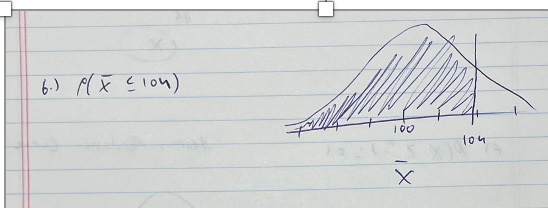 6.) P(X̄ ≤ 104)
100
104
X̄